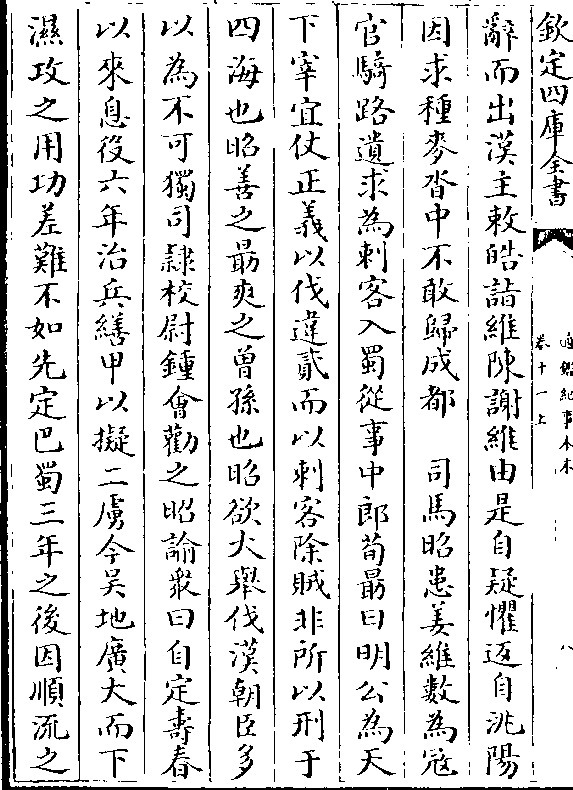 欽定四庫全書
通鑑紀事本末
卷十一上
八
辭而出漢主敕皓詣維陳謝維由是自疑懼返自洮陽
因求種麥沓中不敢歸成都　司馬昭患姜維數為寇
官騎路遺求為刺客入蜀從事中郎荀勗曰明公為天
下宰宜仗正義以伐違貳而以刺客除賊非所以刑于
四海也昭善之勗爽之曾孫也昭欲大舉伐漢朝臣多
以為不可獨司隸校尉鍾會勸之昭諭衆曰自定壽春
以來息役六年治兵繕甲以擬二虜今吳地廣大而下
濕攻之用功差難不如先定巴蜀三年之後因順流之